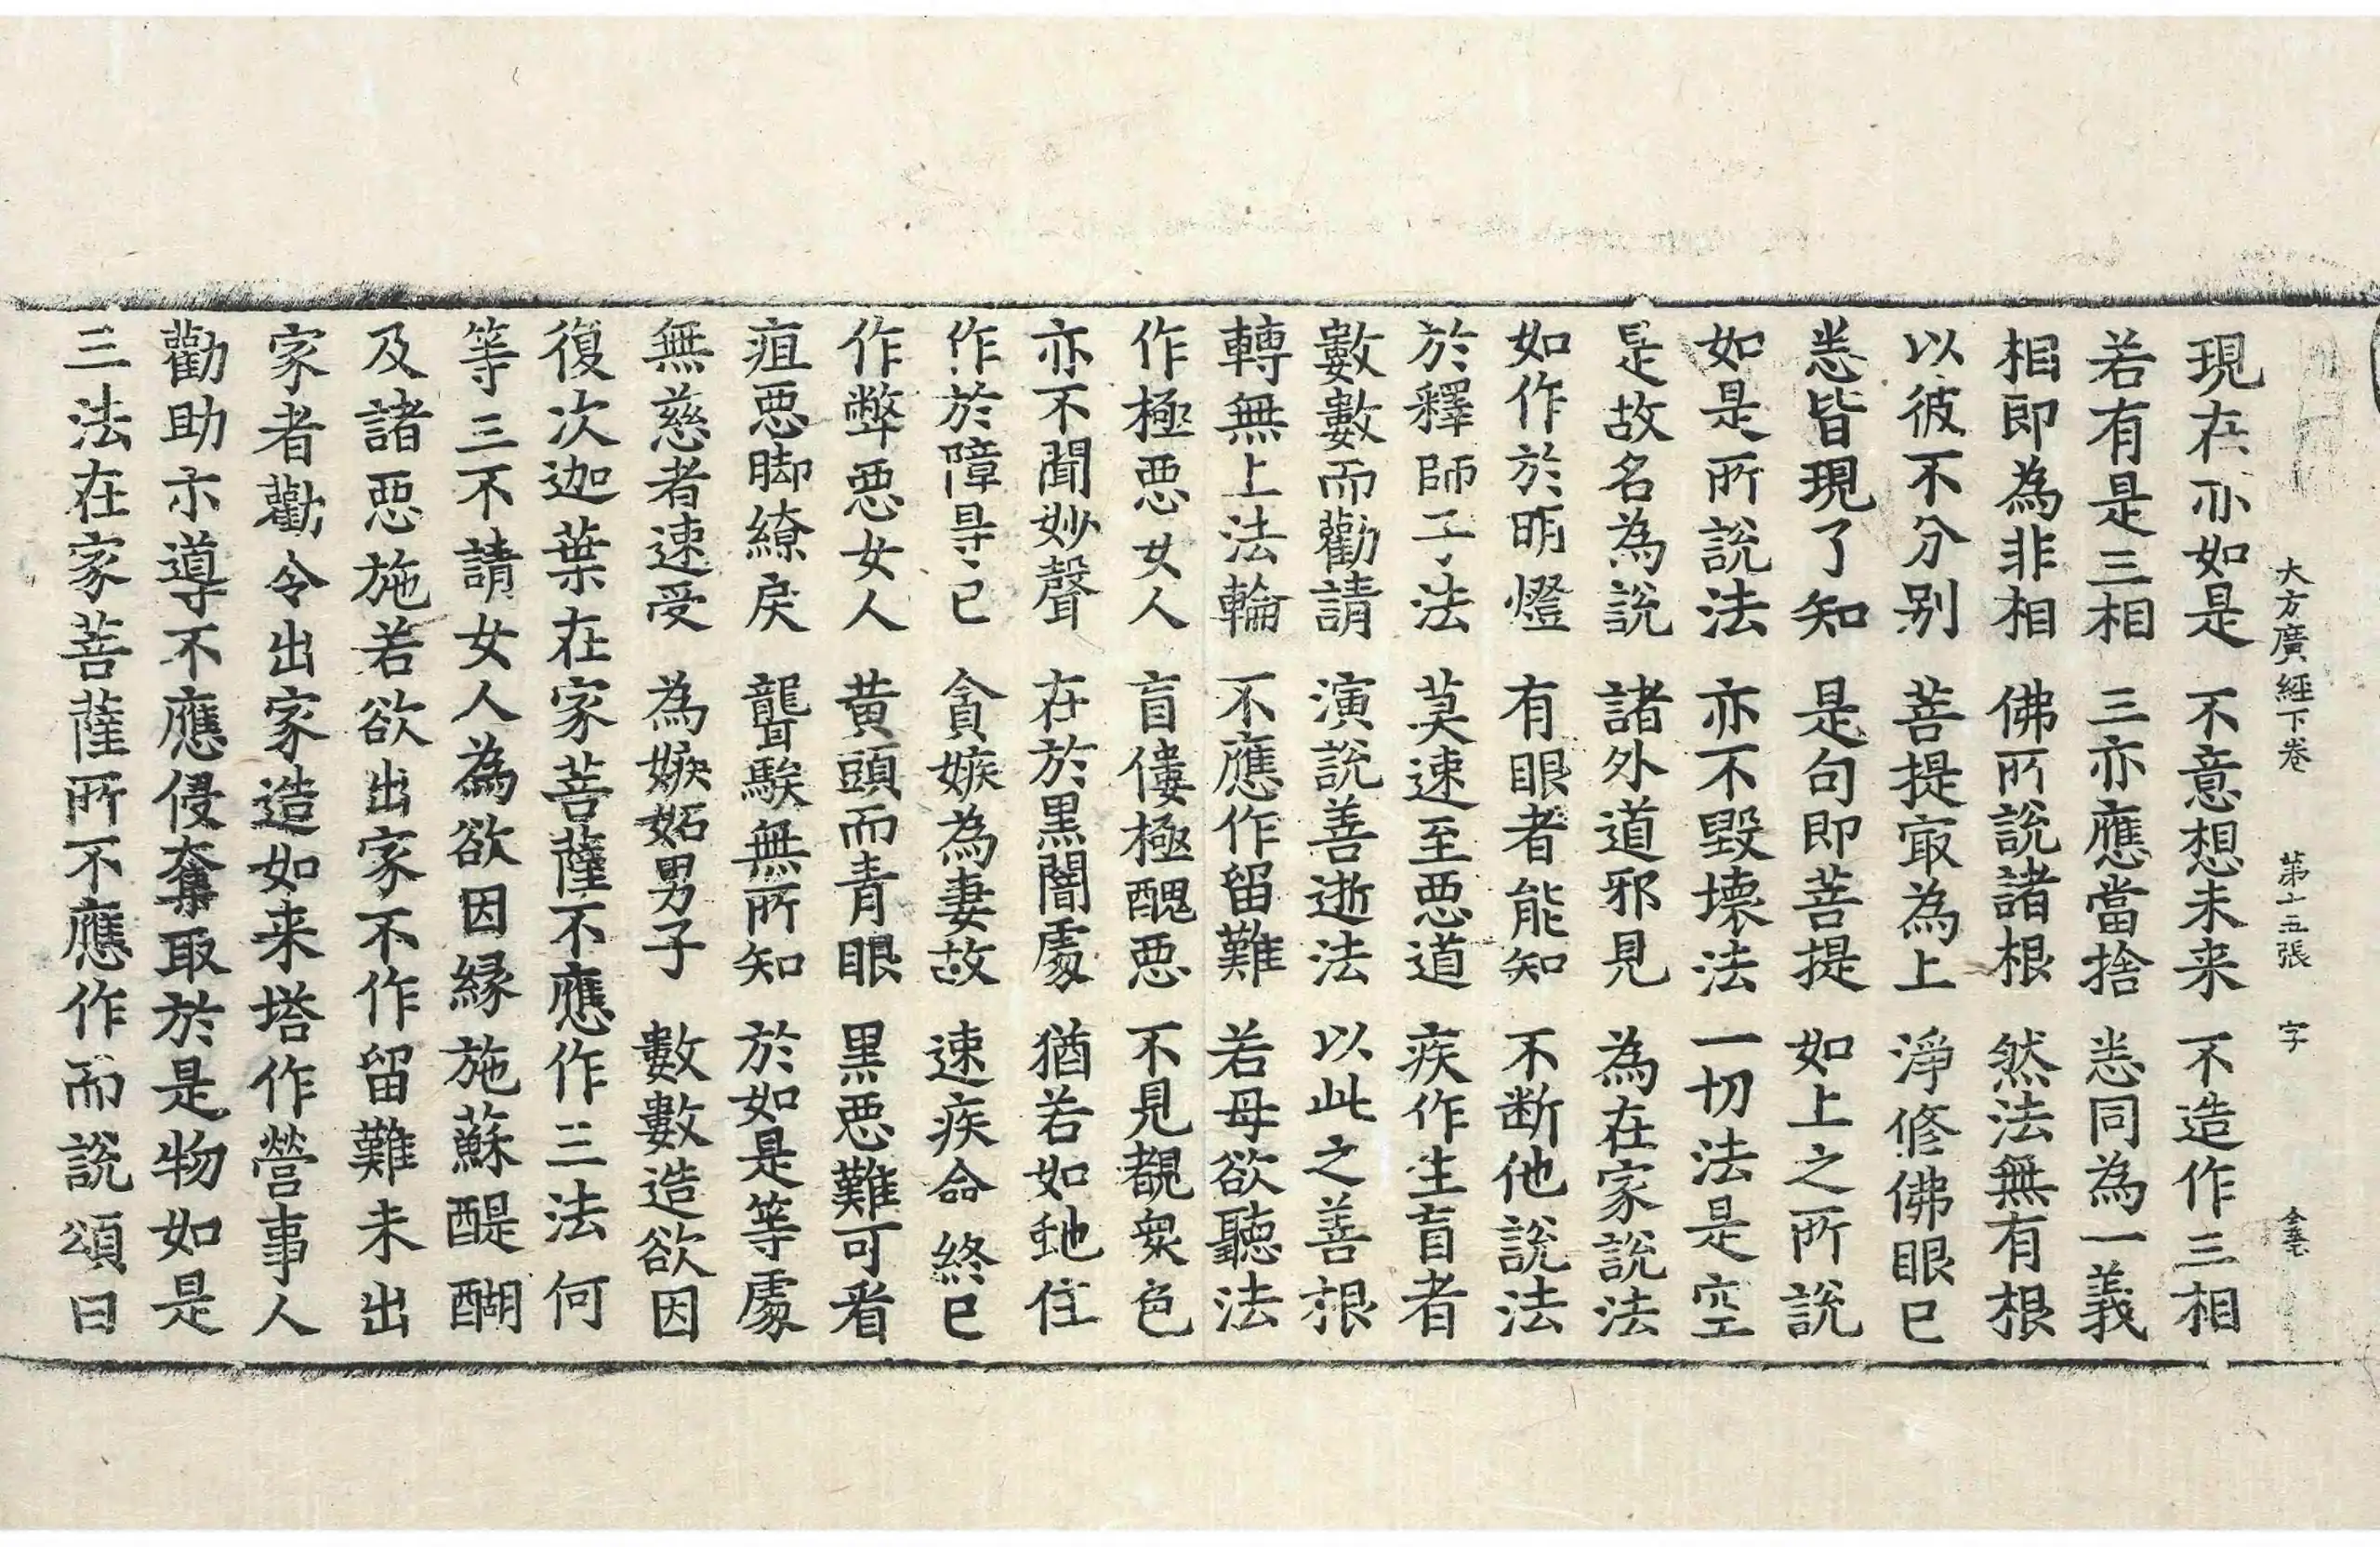 大方廣經下卷　第十五張　字
現在亦如是　不意想未来　不造作三相
若有是三相　三亦應當捨　悉同為一義
相即為非相　佛所說諸根　然法無有根
以彼不分别　菩提㝡為上　淨修佛眼已
悉皆現了知　是句即菩提　如上之所說
如是所說法　亦不毀壞法　一切法是空
是故名為說　諸外道邪見　為在家說法
如作於明燈　有眼者能知　不断他說法
於釋師子法　莫速至惡道　疾作生盲者
數數而勸請　演說善逝法　以此之善根
轉無上法輪　不應作留難　若母欲聽法
作極惡女人　盲僂極醜惡　不見覩衆色
亦不聞妙聲　在於黒闇處　猶若如虵住
作於障㝵已　貪嫉為妻故　速疾命終已
作弊惡女人　黄頭而青眼　黒惡難可㸔
疽惡脚繚戾　聾騃無所知　於如是等處
無慈者速受　為嫉妬男子　數數造欲因
復次迦葉在家菩薩不應作三法何
等三不請女人為欲因緣施蘇醍醐
及諸惡施若欲出家不作留難未出
家者勸令出家造如来塔作營事人
勸助示導不應侵奪取於是物如是
三法在家菩薩所不應作而說頌曰